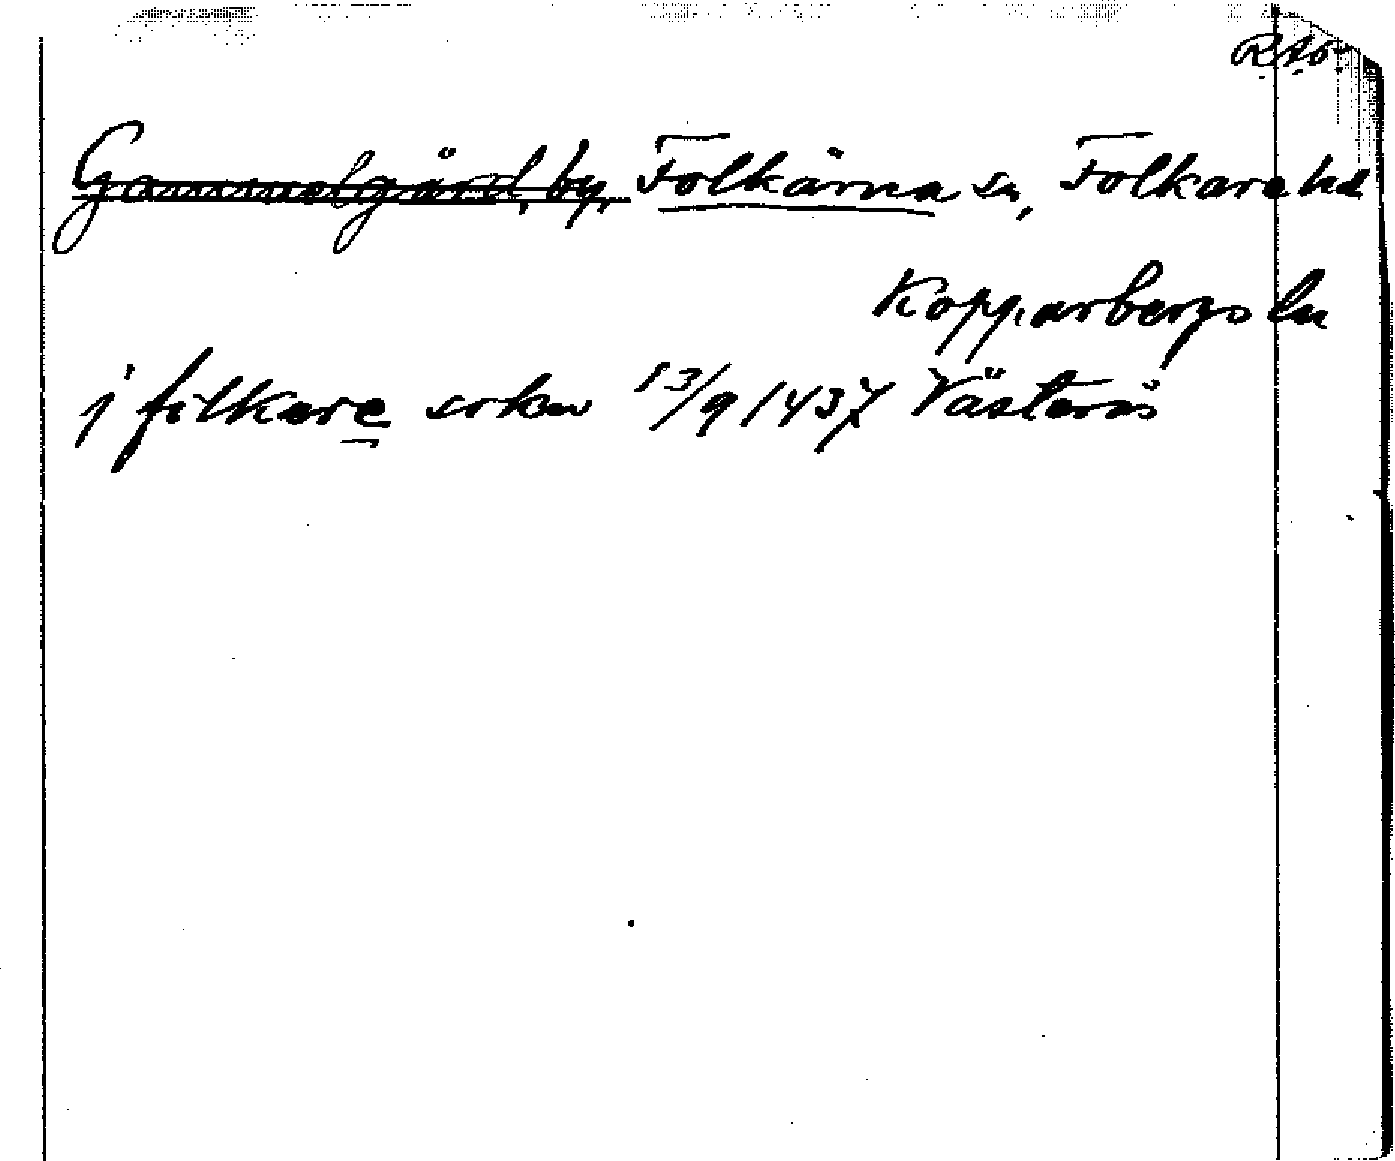 RAÖ.
Gammelgård, by, Folkärna sn, Folkare hd
Kopparbergs län
j folkare sokn 13/9 1437 Västerås